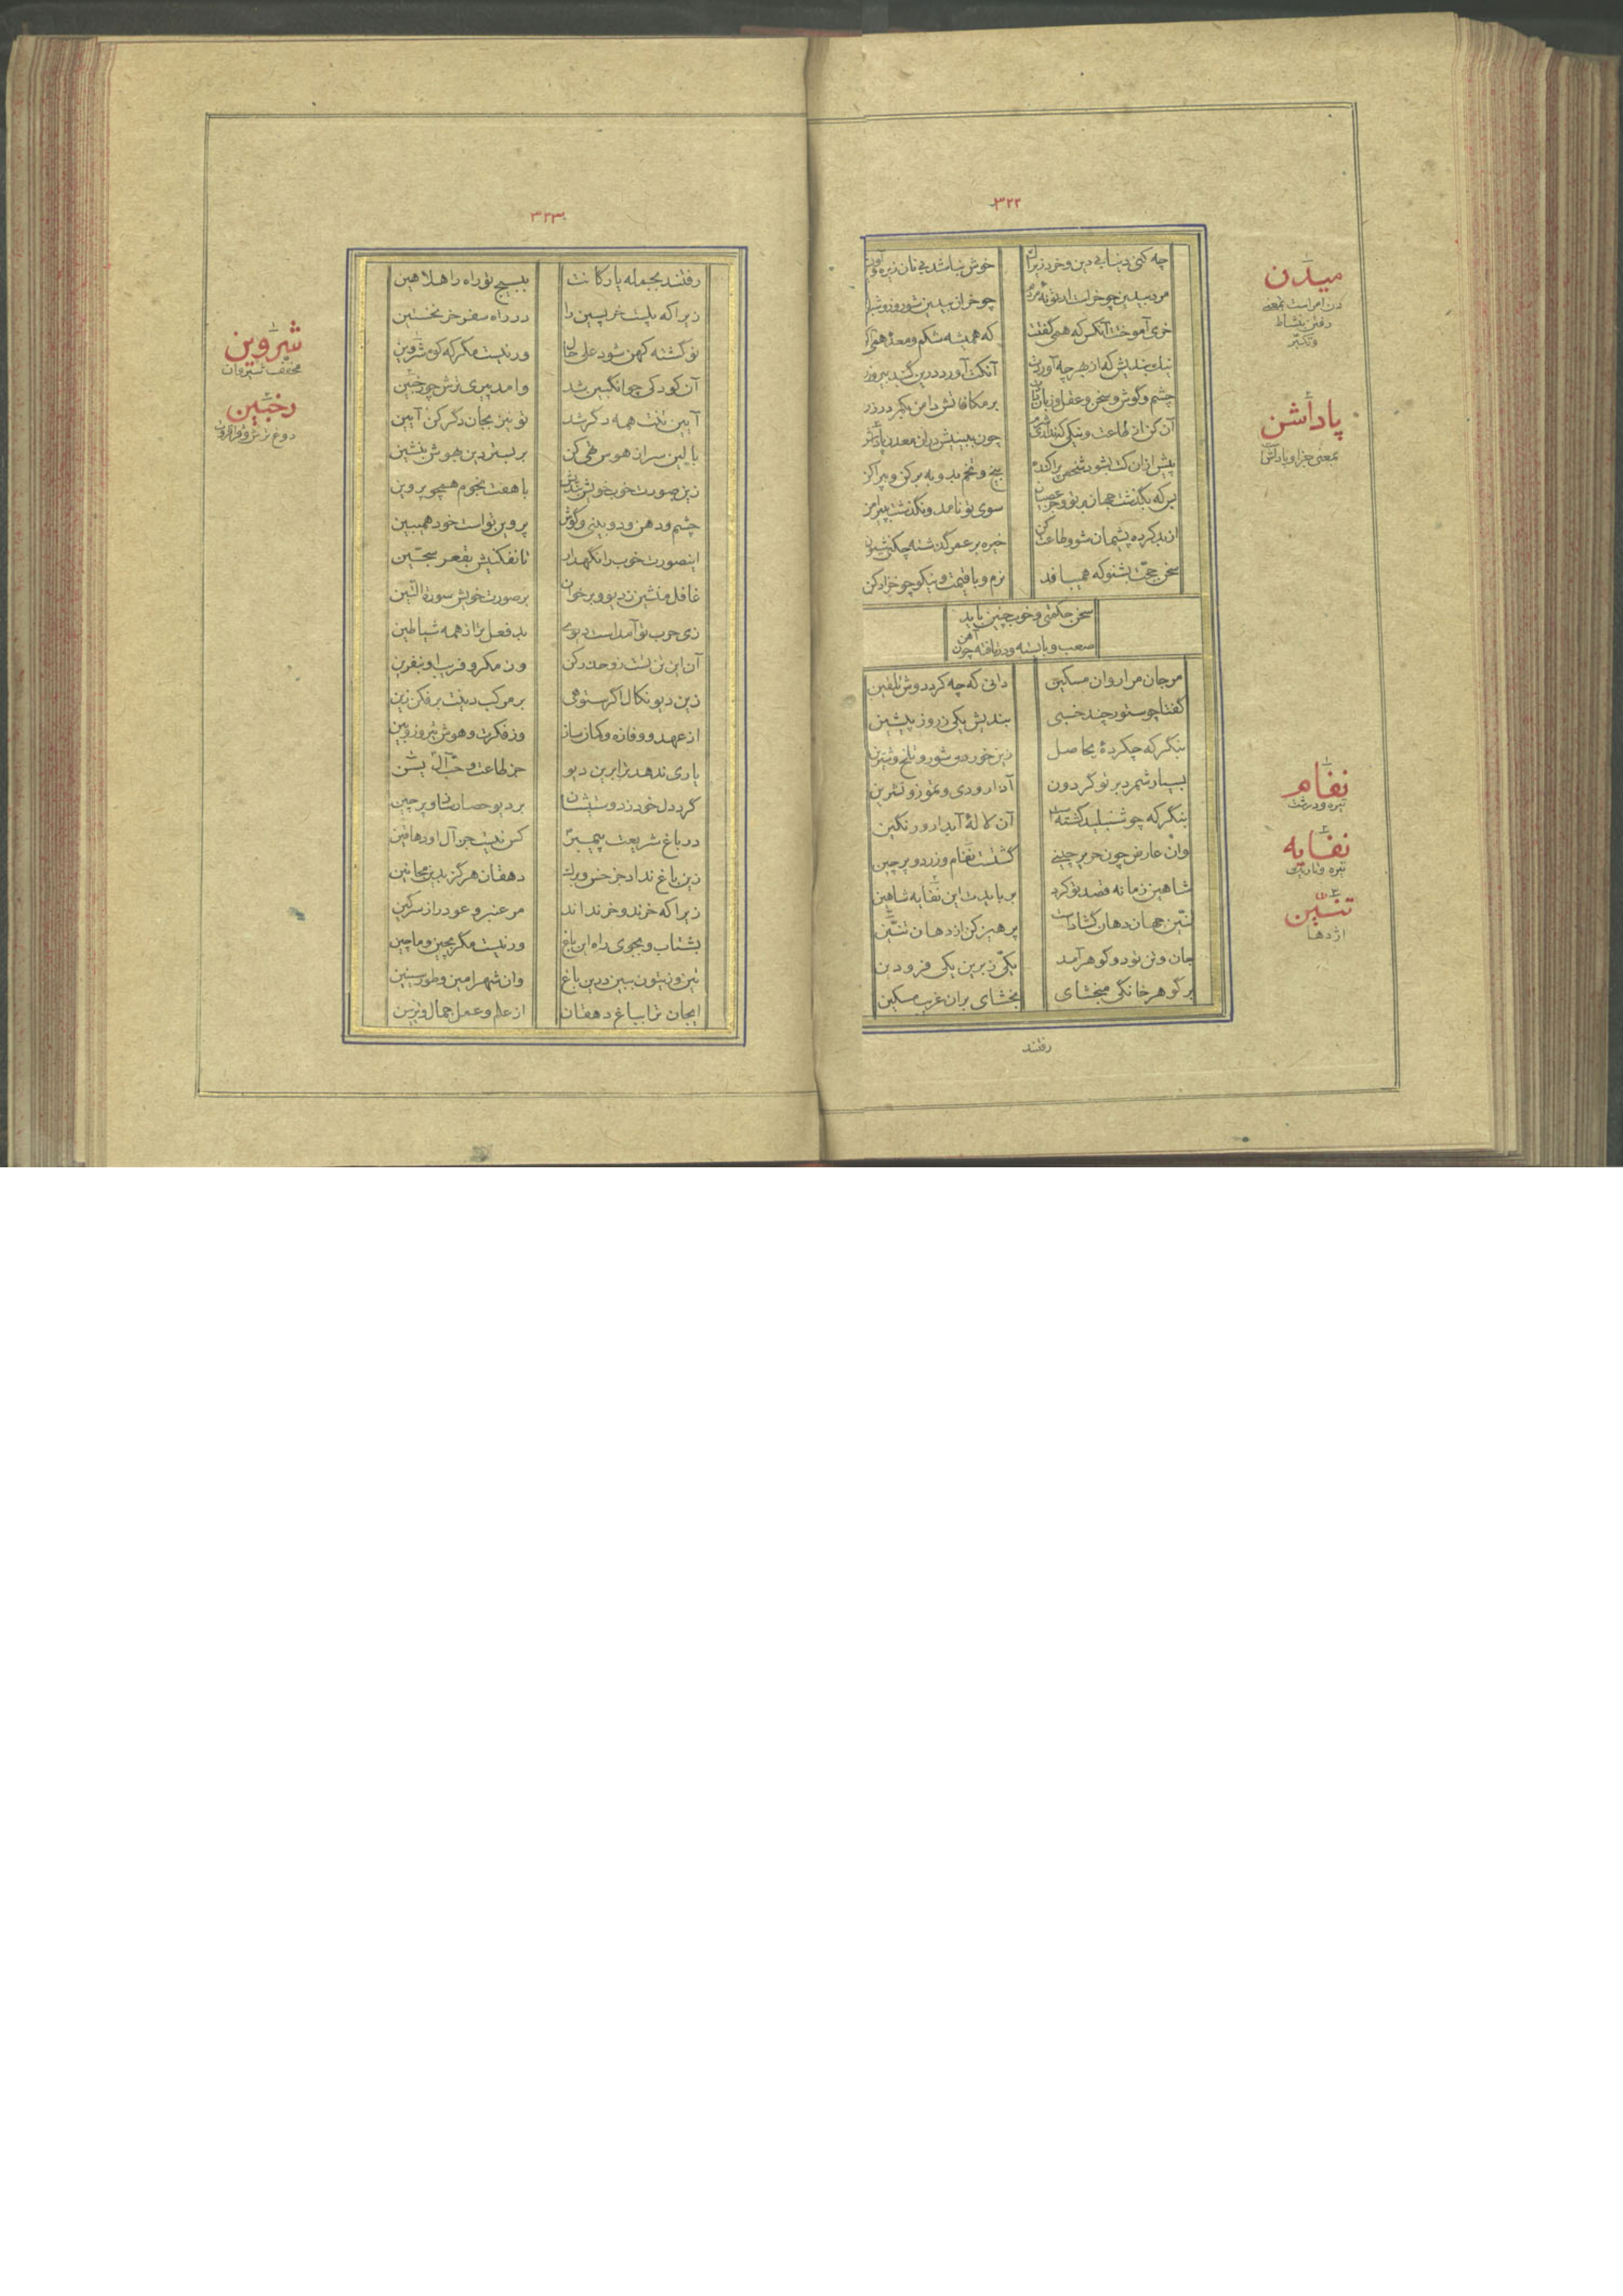 ۳۲۲
چه کنی دنیا بی دین و خرد زیراک
خوش نباشد بی نان زیره و آویشن
مرد بیدین چو خر است ار تو نه مردم
چو خران بیدین شو روز و شبان
خری آموختت آنکس که همی گفت
که همیشه شکم و معده همی آگن
نیک بندیش که از بهر چه آوردت
آنکت آورد درین گنبد بیروزن
چشم و گوش و سخن و عقل و زبان دادت
بر مکافاتش دامن بکمر در زن
آن کن از طاعت و نیکی که نداری شرم
چون ببینیش در آن معدن پاداشن
پیش از آن کت بشود شخص پراکنده
بیخ و تخم بد و به برکن و بپراکن
بر که بگذشت جهان بر تو و جز عصیان
سوی تو نامد و نگذشت بپیرامن
از بد کرده پشیمان شو و طاعت کن
خیره بر عمر گذشته چکنی شیون
سخن حجّت بشنو که همی بافد
نرم و با قیمت و نیکو چو خز ادکن
سخن حکمتی و خوب چنین باید
صعب و بایسته و دربافته چون آهن
مر جان مرا روان مسکین
دانی که چه کرد دوش تلقین
گفتا چو ستور چند خسبی
بندیش یکی ز روز پیشین
بنگر که چه کردهٔ بحاصل
زین خوردهٔ شور و تلخ و شیرین
بسیار شمرد بر تو گردون
آذار و دی و تموز و تشرین
بنگر که چو شنبلید گشته‌است
آن لالهٔ آبدار و رنگین
وان عارض چون حریر چینی
گشتست نفام و زرد و پرچین
شاهین زمانه قصد تو کرد
بربایدت این نفایه شاهین
تنّین جهان دهان گشادست
پرهیز کن از دهان تنّین
جان و تن تو دو گوهر آمد
یکّی زبرین یکی فرودین
بر گوهر خانگی مبخشای
بخشای بران غریب مسکین
رفتند
میدن
دن امر است بمعنی
رفتن بنشاط
و تکبّر
پاداشن
بمعنی جزا و پاداش است
نفام
تیره و زشت
نفایه
تیره و تاریک
تنّین
اژدها
۳۲۳
رفتند بجمله یارکانت
ببسیج تو راه را هلا هین
زیرا که پلیت خر پسین را
در راه سفر خر نخستین
نو گشته کهن شود علی حال
ور نیست مگر که کوه شروین
آن کودکی چو انگبین شد
وامد پیری ترش چو رخبین
آیین تنت همه دگر شد
تو نیز بجان دگر کن آیین
بالین سر از هوس تهی کن
بر بستر دین بهوش بنشین
زین صورت خوب خویش بندیش
با هفت نجوم همچو پروین
چشم و دهن و دو بینی و گوش
پروین تو است خود همیبین
این صورت خوب را نگهدار
تا نفکنیش بقعر سجّین
غافل منشین ز دیو و برخوان
بر صورت خویش سورة التّین
زی حرب تو آمدست دیوی
بد فعل‌تر از همه شیاطین
آن این تن تست زو حذر کن
وز مکر و فریب او بنفرین
زین دیو نکال اگر ستوهی
بر مرکب دینت برفکن زین
از عهد و وفا زه و کمان ساز
وز فکرت و هوش تیر و زوبین
یاری ندهد ترا برین دیو
جز طاعت و حبّ آل یسن
گرد دل خود ز دوستیشان
بر دیو حصار ساز و پرچین
در باغ شریعت پیمبر
کس نیست جز آل او دهاقین
زین باغ نداد جز خس و برگ
دهقان هرگز بدین مجانین
زیرا که خرند و خر نداند
مر عنبر و عود را ز سرگین
بشتاب و بجوی راه این باغ
ور نیست مگر بچین و ماچین
تین و زیتون ببین درین باغ
وان شهر امین و طور سینین
ایجان ترا بباغ دهقان
از علم و عمل جمال و تزیین
شروین
مخفف شیروان
رخبین
دوغ ترش و قراقروت